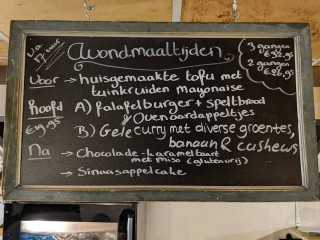 va 17 uur
Avondmaaltijden
3 gangen
€32,95
2 gangen
€26,95
Voor → huisgemaakte tofu met
tuinkruiden mayonaise
Hoofd A) falafelburger + speltbrood
€19,95 & Ovenaardappeltjes
B) Gele curry met diverse groentes,
banaan & cashews
Na → Chocolade-karameltaart
met miso (glutenvrij)
→ Sinaasappelcake